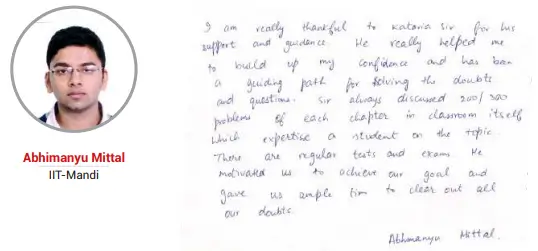 I am really thankful to Kataria sir for his
support and guidance. He really helped me
to build up my confidence and has been
a guiding path for solving the doubts
and questions. Sir always discussed 200/300
problems of each chapter in classroom itself
which expertise a student on the topic.
There are regular tests and exams. He
motivated us to achieve our goal and
gave us ample tim to clear out all
our doubts.
Abhimanyu Mittal.
Abhimanyu Mittal
IIT-Mandi